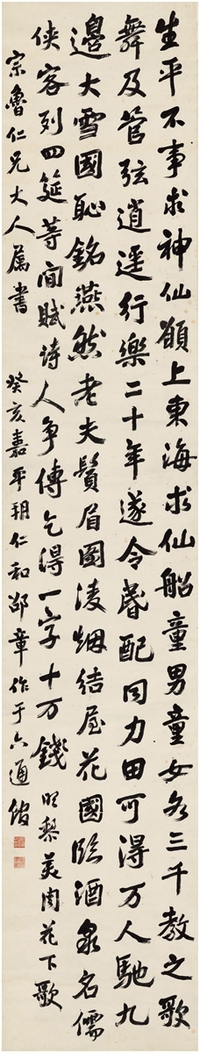 生平不事求神仙願上東海求仙船童男童女各三千教之歌
舞及管弦逍遥行樂二十年遂令昏配同力田可得万人馳九
邊大雪國恥銘燕然老夫鬢眉圖淩烟結屋花國臨酒泉名儒
俠客列四筵等閒賦詩人争傳乞得一字十万錢 明黎美周花下歌
宗魯仁兄大人屬書 癸亥嘉平朔仁和邵章作于六通館